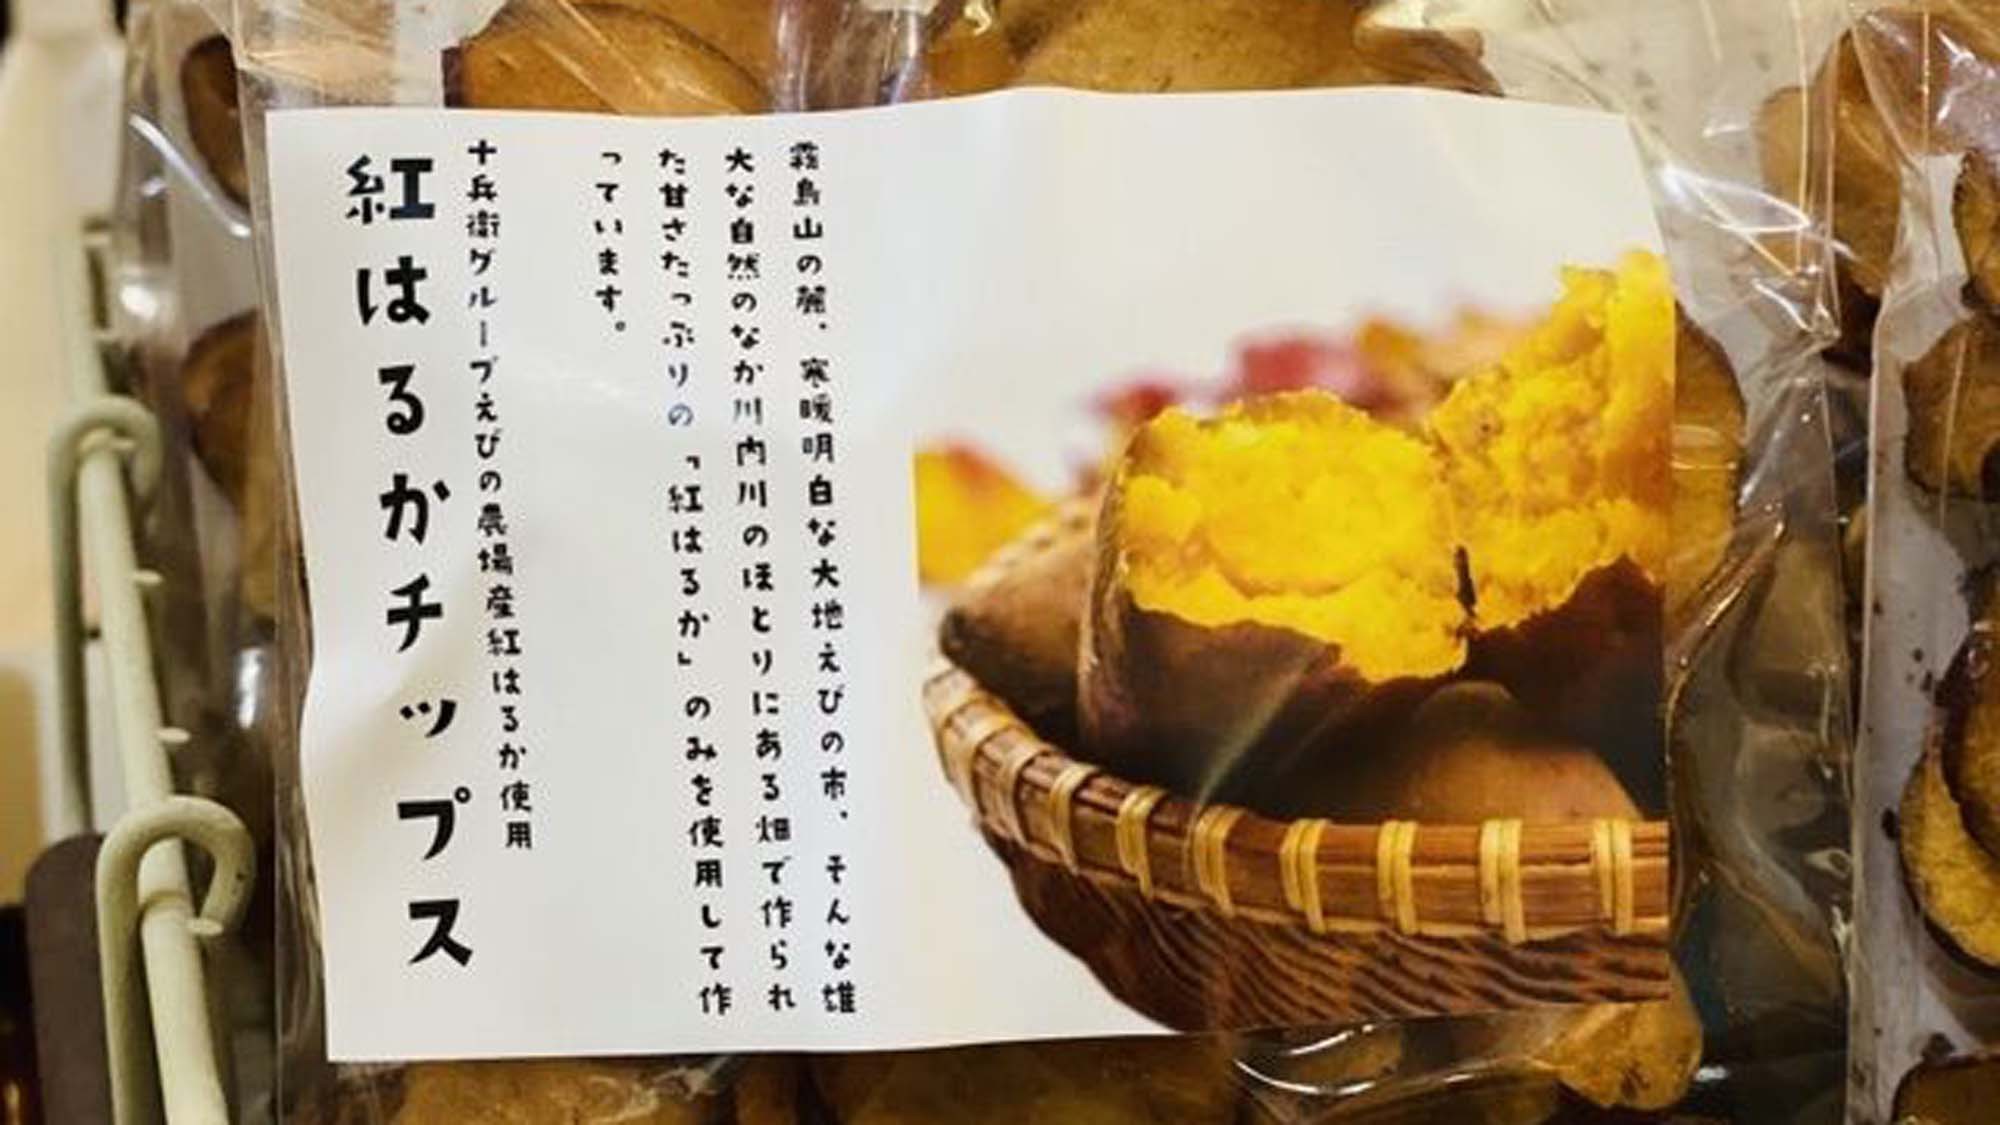 霧島山の麓、寒暖明白な大地えびの市、そんな雄
大な自然のなか川内川のほとりにある畑で作られ
た甘さたっぷりの「紅はるか」のみを使用して作
っています。
十兵衛グループえびの農場産紅はるか使用
紅はるかチップス